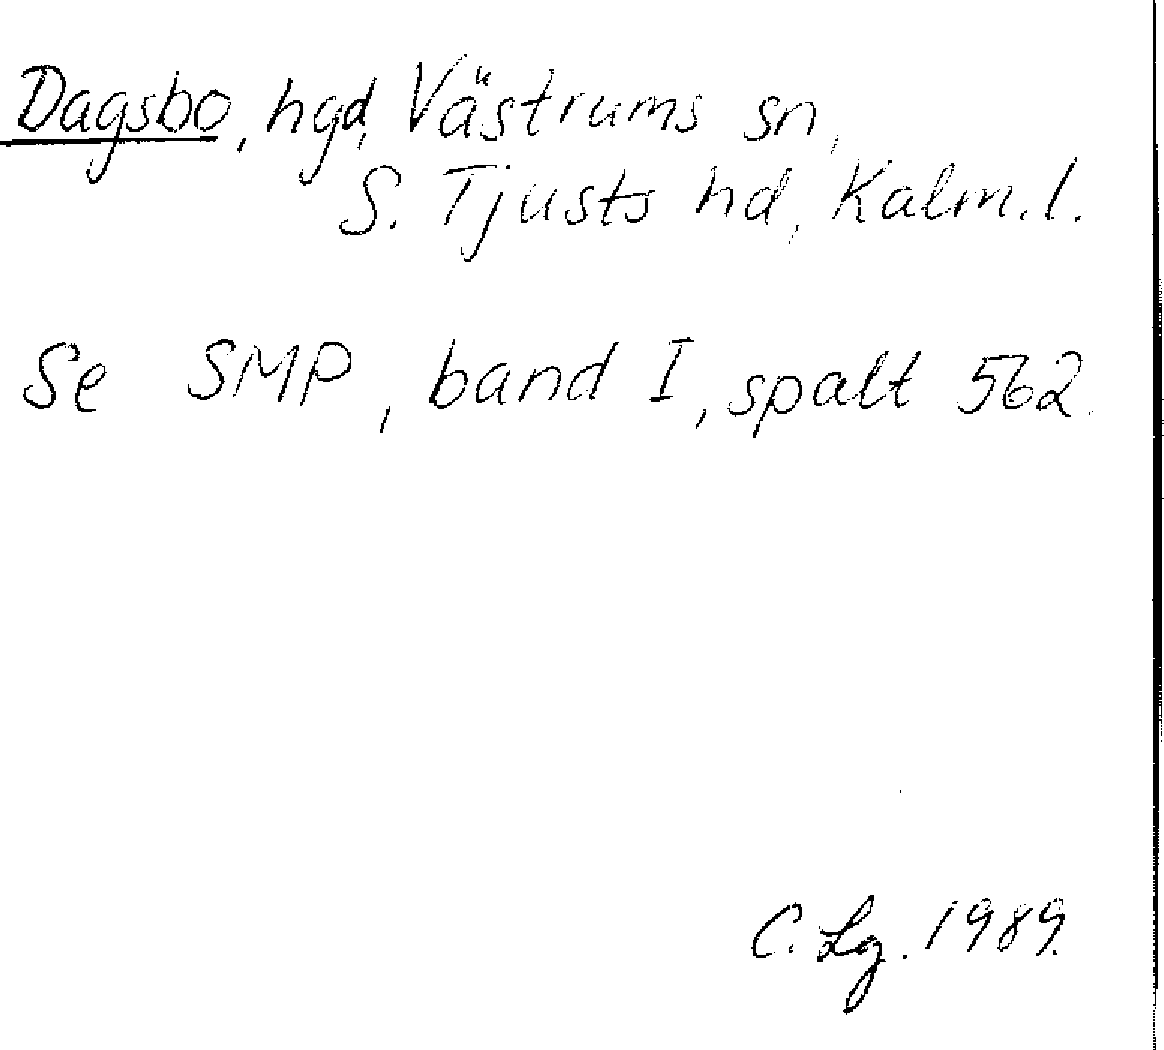 Dagsbo, hgd, Västrums sn,
S. Tjusts hd, Kalm. l.
Se SMP, band I, spalt 562.
C. Lg. 1989.